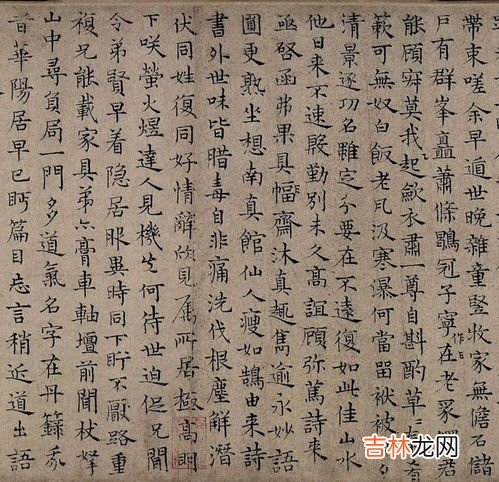 帶束嗟余早遁世晚雜童豎牧家無儋石儲
戶有群峯矗蕭條鶡冠子寧在老冢
能顧痾莫我起歛衣肅一尊自斟酌草草肴
蔌可無奴白飯老瓦汲寒瀑何當留袱被
清景逐功名雖定分要在不遠復如此佳山水
他日來不速殷勤別未久高誼顧弥篤詩來
亟啓函弗果具幅齋沐真趣雋逾永妙語
圓更熟坐想南真館仙人瘦如鵠由來詩
書外世味皆腊毒自非痛洗伐根塵解潛
伏同姓復同好情辭欣見屬所居極高明
下咲螢火煜達人見機先何待世迫促兄聞
令弟賢早着隱居服異時同下不厭路重
複兄能載家具弟亦膏車軸壇前聞杖拏
山中尋負局一門多道氣名字在丹籙
晉華陽居早已眄篇目忘言稍近道出語
吉林龙网